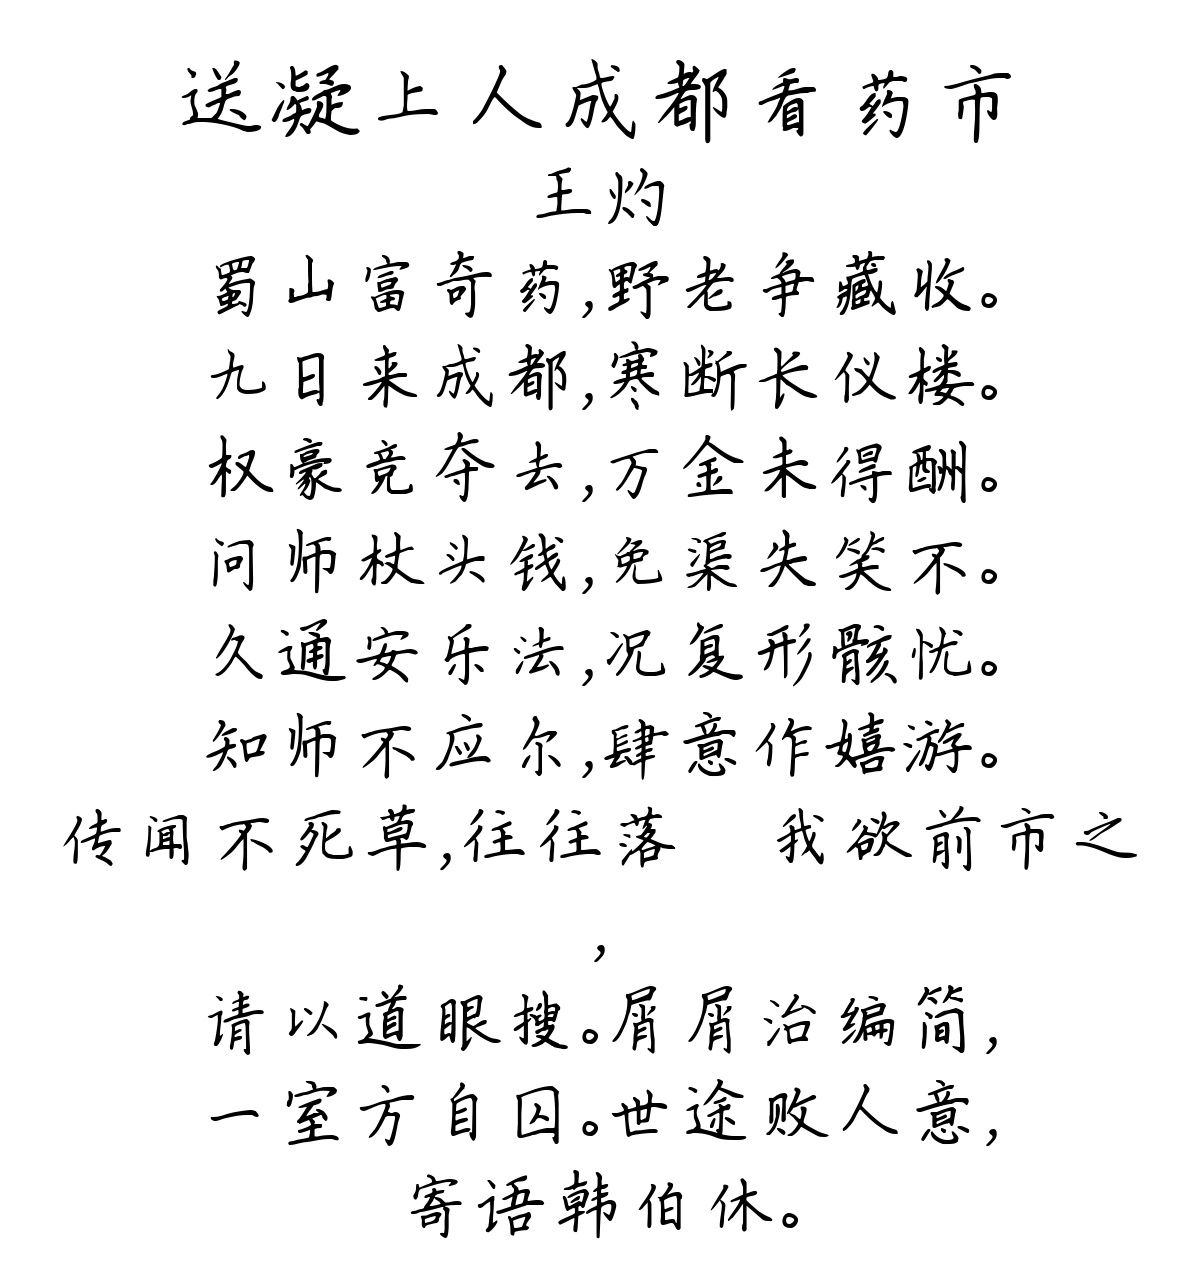 送凝上人成都看药市
王灼
蜀山富奇药,野老争藏收。
九日来成都,寒断长仪楼。
权豪竞夺去,万金未得酬。
问师杖头钱,免渠失笑不。
久通安乐法,况复形骸忧。
知师不应尔,肆意作嬉游。
传闻不死草,往往落 我欲前市之
,
请以道眼搜。屑屑治编简,
一室方自囚。世途败人意,
寄语韩伯休。